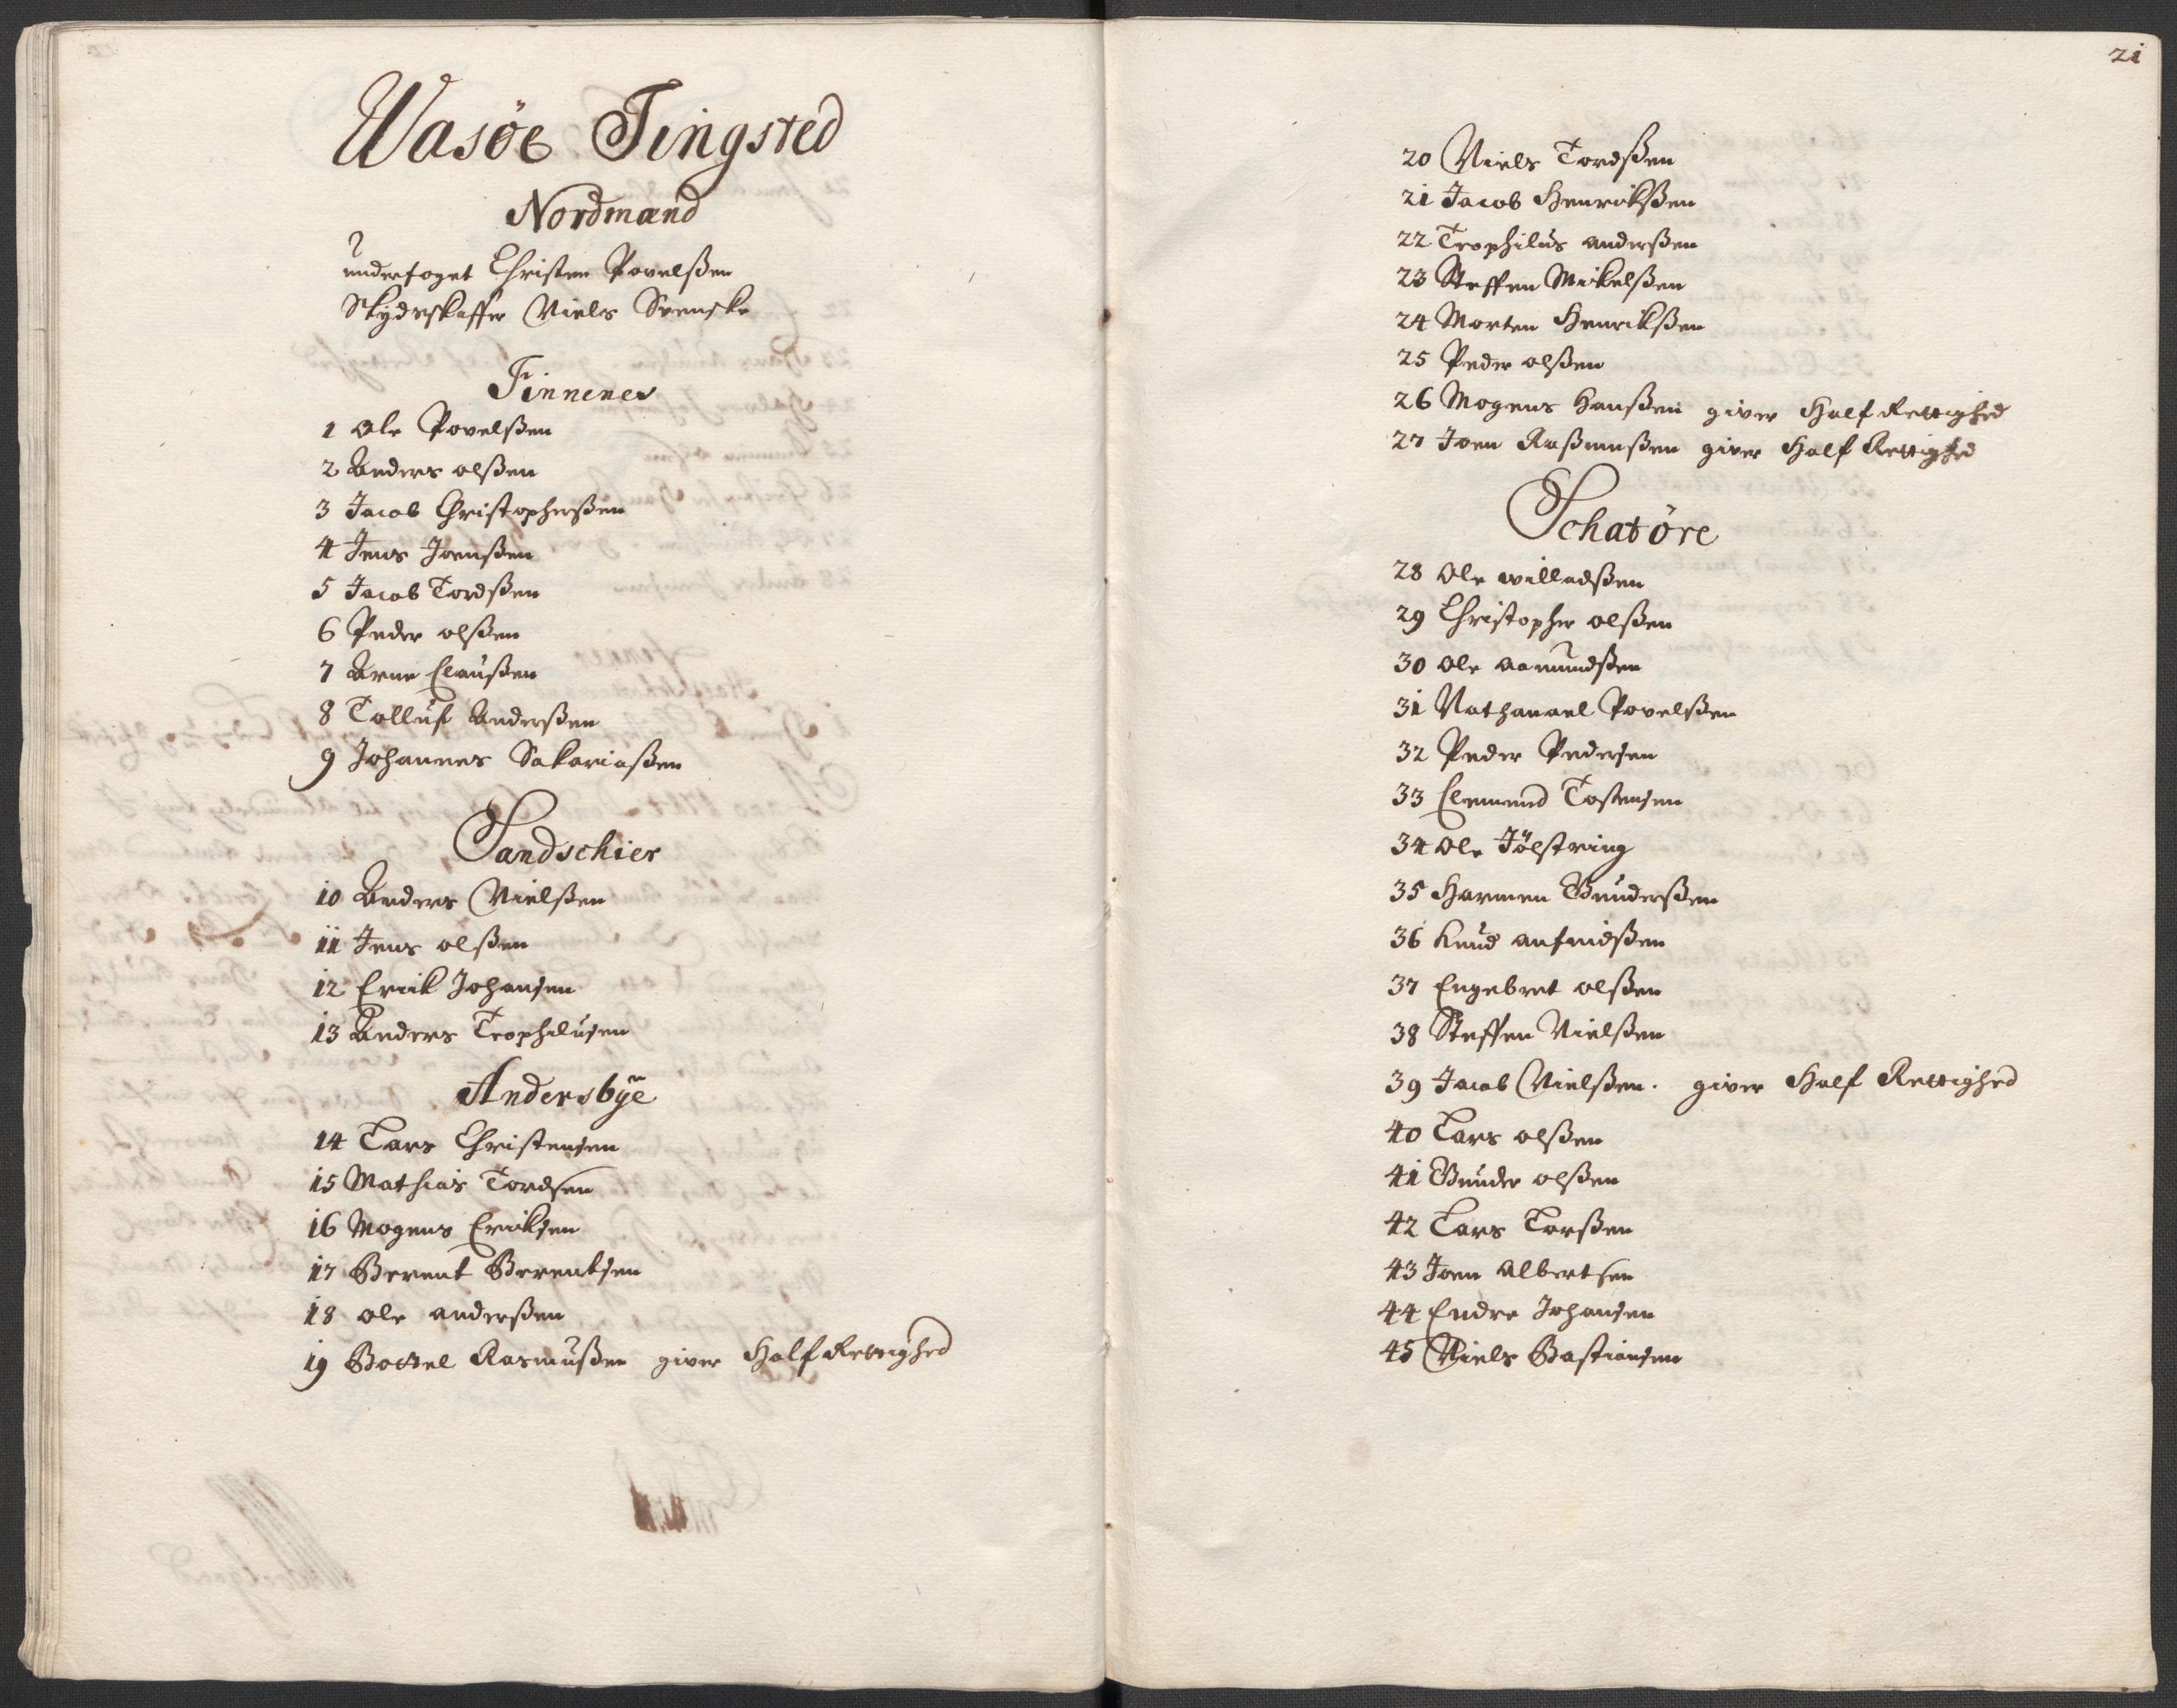 Wasöe Tingsted
Nordmænd
underfoget Christen Povelßen
Skydsskaffer Niels Svenske
Finnenes
1 Ole Povelßen
2 Anders olßen
3 Jacob Christopherßen
4 Jens Joenßen
5 Jacob Tordßen
6 Peder olßen
7 Arne Claußen
8 Tolluf Anderßen
9 Johannes Sakariaßen
Sandschier
10 Anders Nielßen
11 Jens olßen
12 Erick Johansen
13 Anders Teophilusen
Andersbÿe
14 Lars Christensen
15 Mathias Tordsen
16 Mogens Ericksen
17 Berent Berentsen
18 ole anderßen
19 Bottel Rasmußen giver Half Rettighed
21
20 Niels Tordßen
21 Jacob Henrikßen
22 Teophilus anderßen
23 Steffen Mikelßen
24 Morten Henrikßen
25 Peder olßen
26 Mogens Hanßen giver Half Rettighed
27 Joen Raßmußen giver Half Rettighed
Schatöre
28 Ole willadßen
29 Christopher olßen
30 ole aamundßen
31 Nathanael Povelßen
32 Peder Pedersen
33 Clemend Tostensen
34 Ole Jölstring
35 Harmen Gunderßen
36 Knud anfindßen
37 Engebret olßen
38 Steffen Nielßen
39 Jacob Nielßen. giver Half Rettighed
40 Lars olßen
41 Gunder olßen
42 Lars Larßen
43 Joen Albertsen
44 Endre Johansen
45 Niels Bastiansen